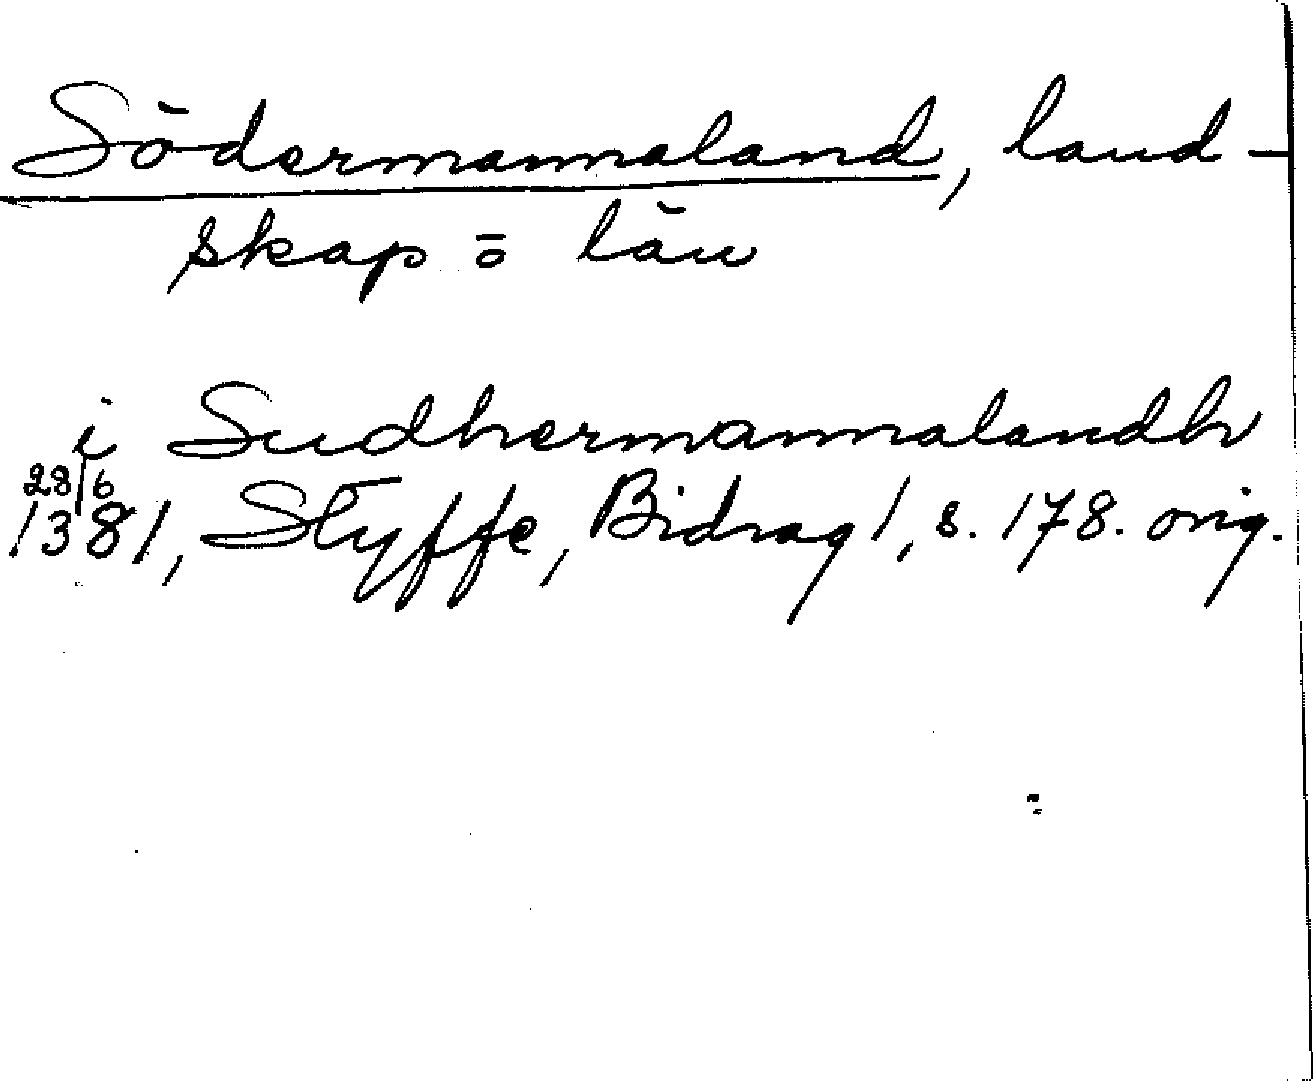 Södermannaland, land-
skap o län
i Sudhermannalandh
28/6
1381, Styffe, Bidrag 1, s. 178. orig.